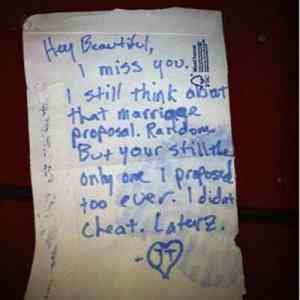 Hey Beautiful,
I miss you.
I still think about
that marriage
proposal. Random.
But your still the
only one I proposed
too ever. I didnt
cheat. Laterz.
- JT